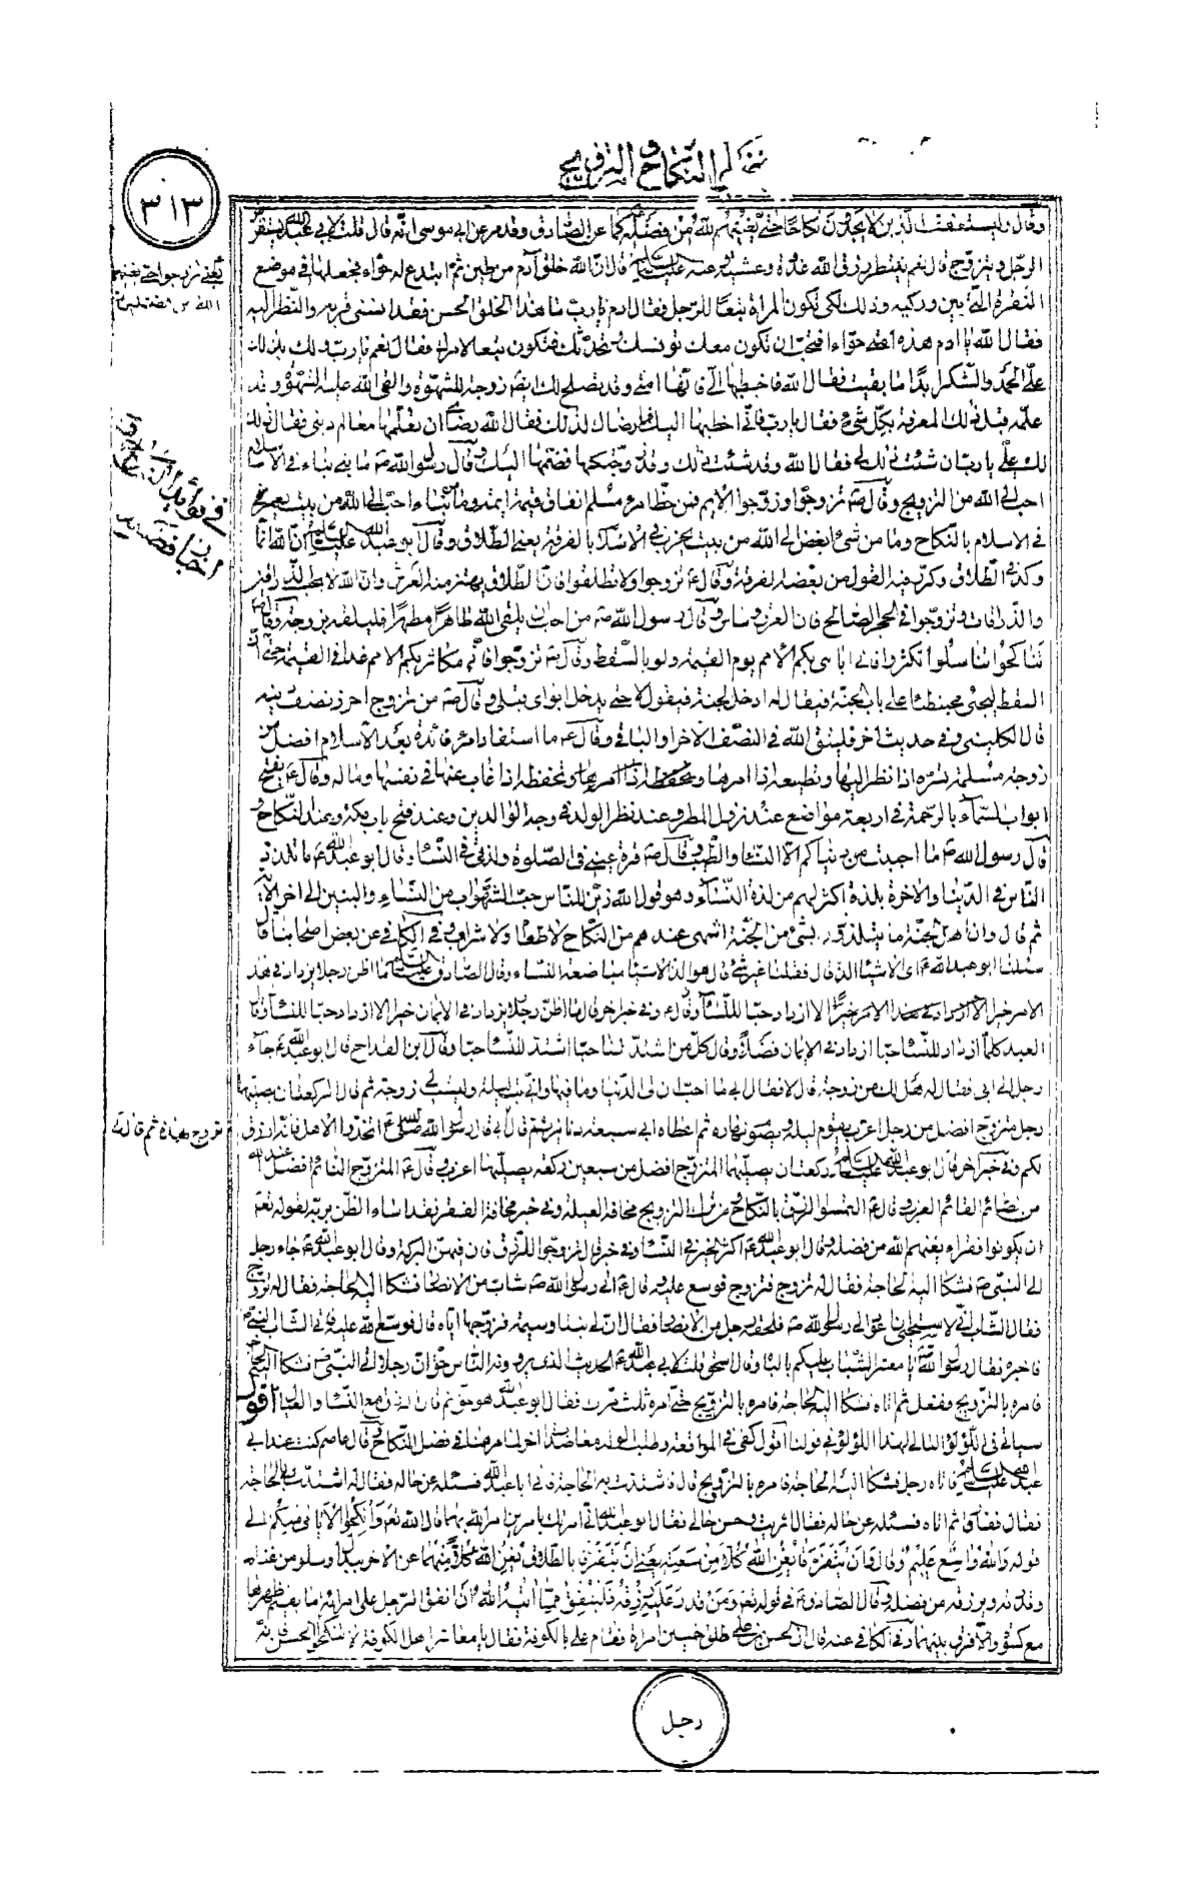 في النكاح و التزويج
٣١٣
وقال وليستعفف الذين لا يجدون نكاحا حتى يغنيهم الله من فضله كما عن الصادق وقد مر عن ابي موسى انه قال قلت لابي عبد الله
الرجل يتزوج قال نعم ينتظر رزق الله غدوة وعشية وعنه عليه السلام قال ان الله خلق آدم من طين ثم ابتدع له حواء فجعلها في موضع
النقرة التي بين وركيه وذلك لكي تكون المرأة تبعا للرجل فقال آدم يا رب ما هذا الخلق الحسن فقد انسني قربه والنظر اليه
فقال الله يا ادم هذه امتي حواء افتحب ان تكون معك تونسك وتحدثك فتكون تبعا لامرك فقال نعم يا رب ولك بذلك
علي الحمد والشكر ابدا ما بقيت فقال الله فاخطبها الي فانها امتي وقد تصلح لك ايضا زوجة للشهوة والقى الله عليه الشهوة وقد
علمه قبل ذلك المعرفة بكل شيء فقال يا رب فاني اخطبها اليك فما رضاك لذلك فقال الله رضاي ان تعلمها معالم ديني فقال ذلك
لك علي يا رب ان شئت ذلك لي فقال الله وقد شئت ذلك وقد زوجتكها فضمها اليك وقال رسول الله ص ما بني بناء في الاسلام
احب الى الله من التزويج وقال ص تزوجوا وزوجوا الايم فمن حظ امرء مسلم انفاق قيمة ايمة وما شيء احب الى الله من بيت يعمر
في الاسلام بالنكاح وما من شيء ابغض الى الله من بيت يخرب في الاسلام بالفرقة يعني الطلاق وقال ابو عبد الله عليه السلام ان الله انما
وكد في الطلاق وكرر فيه القول من بغضه الفرقة وقال ع تزوجوا ولا تطلقوا فان الطلاق يهتز منه العرش وان الله لا يحب الذواقين
والذواقات وتزوجوا في الحجر الصالح فان العرق دساس وقال رسول الله ص من احب ان يلقى الله طاهرا مطهرا فليلقه بزوجة وقال ص
تناكحوا تناسلوا تكثروا فاني اباهي بكم الامم يوم القيمة ولو بالسقط وقال ص تزوجوا فاني مكاثر بكم الامم غدا في القيمة حتى ان
السقط ليجيء محبنطئا على باب الجنة فيقال له ادخل الجنة فيقول لا حتى يدخل ابواي قبلي وقال ص من تزوج احرز نصف دينه
قال الكليني وفي حديث آخر فليتق الله في النصف الاخر او الباقي وقال ع ما استفاد امرء فائدة بعد الاسلام افضل من
زوجة مسلمة تسره اذا نظر اليها وتطيعه اذا امرها وتحفظه اذا غاب عنها في نفسها وماله وقال ع يفتح
ابواب السماء بالرحمة في اربعة مواضع عند نزول المطر وعند نظر الولد في وجه الوالدين وعند فتح باب الكعبة وعند النكاح و
قال رسول الله ص ما احببت من دنياكم الا النساء والطيب وقال ص قرة عيني في الصلوة ولذتي في النساء وقال ابو عبد الله ع ما تلذذ
الناس في الدنيا والاخرة بلذة اكثر لهم من لذة النساء وهو قول الله زين للناس حب الشهوات من النساء والبنين الى اخر الآية
ثم قال وان اهل الجنة ما يتلذذون بشيء من الجنة اشهى عندهم من النكاح لا طعام ولا شراب وفي الكافي عن بعض اصحابنا قال
سئلنا ابو عبد الله ع اي الاشياء الذ قال فقلنا غير شيء قال هو الذ الاشياء مباضعة النساء وقال الصادق عليه السلام ما اظن رجلا يزداد في هذا
الامر خيرا الا ازداد حبا للنساء وقال ع وفي خبر اخر قال ما اظن رجلا يزداد في الايمان خيرا الا ازداد حبا للنساء وقال
العبد كلما ازداد للنساء حبا ازداد في الايمان فضلا وقال كل من اشتد لنا حبا اشتد للنساء حبا وقال ابن القداح قال ابو عبد الله ع جاء
رجل الى ابي فقال له هل لك من زوجة قال لا فقال ابي ما احب ان لي الدنيا وما فيها واني بت ليلة وليست لي زوجة ثم قال الركعتان يصليهما
رجل متزوج افضل من رجل اعزب يقوم ليله ويصوم نهاره ثم اعطاه ابي سبعة دنانير ثم قال ابي قال رسول الله ص اتخذوا الاهل فانه ارزق
لكم وفي خبر اخر قال ابو عبد الله عليه السلام ركعتان يصليهما المتزوج افضل من سبعين ركعة يصليها اعزب وقال ع المتزوج النائم افضل عند الله
من الصائم القائم العزب وقال ع التمسوا الرزق بالنكاح من ترك التزويج مخافة العيلة وفي خبر مخافة الفقر فقد اساء الظن بربه لقوله تعالى
ان يكونوا فقراء يغنهم الله من فضله وقال ابو عبد الله ع اكثر الخير في النساء وفي خبر قال تزوجوا للرزق فان فيهن البركة وقال ابو عبد الله ع جاء رجل
الى النبي ص فشكا اليه الحاجة فقال له تزوج فتزوج فوسع عليه وقال ع اتى رسول الله ص شاب من الانصار فشكا اليه الحاجة فقال له تزوج
فقال الشاب اني لاستحيي ان اعود الى رسول الله ص فلحقه رجل من الانصار فقال ان لي بنتا وسيمة فزوجها اياه قال فوسع الله عليه فاتى الشاب النبي ص
فاخبره فقال رسول الله ص يا معشر الشباب عليكم بالباه وقال اسحق قلت لابي عبد الله ع الحديث الذي يرويه الناس حق ان رجلا اتى النبي ص فشكا اليه الحاجة
فامره بالتزويج ففعل ثم اتاه فشكا اليه الحاجة فامره بالتزويج حتى امره ثلث مرات فقال ابو عبد الله هو حق ثم قال الرزق مع النساء والعيال اقول
سياتي في اللؤلؤ التالي لهذا اللؤلؤ في قولنا اقول كفى في المواقعة وطلب الولد معاضدا اخر لما مر هنا في فضل النكاح وقال عاصم كنت عند ابي
عبد الله عليه السلام فاتاه رجل فشكا اليه الحاجة فامره بالتزويج قال فاشتدت به الحاجة فاتى ابا عبد الله فسئله عن حاله فقال له اشتدت بي الحاجة
فقال ففارق ثم اتاه فسئله عن حاله فقال اثريت وحسن حالي فقال ابو عبد الله اني امرتك بامرين امر الله بهما قال الله تعالى وانكحوا الايامى منكم الى
قوله والله واسع عليم وقال وان يتفرقا يغن الله كلا من سعته يعني ان يتفرقا بالطلاق يغن الله كلا منهما عن الاخر ببدل وسلو من غناه
وقدرته ويرزقه من فضله وقال الصادق ع في قوله تعالى ومن قدر عليه رزقه فلينفق مما آتيه الله ان انفق الرجل على امرأته ما يقيم ظهرها
مع كسوة والا فرق بينهما وفي الكافي عنه قال ان الحسن بن علي طلق خمسين امرأة فقام علي بالكوفة فقال يا معاشر اهل الكوفة لا تنكحوا الحسن فانه
رجل
في فوائد التزويج
تزوج بهذه ثم قال له